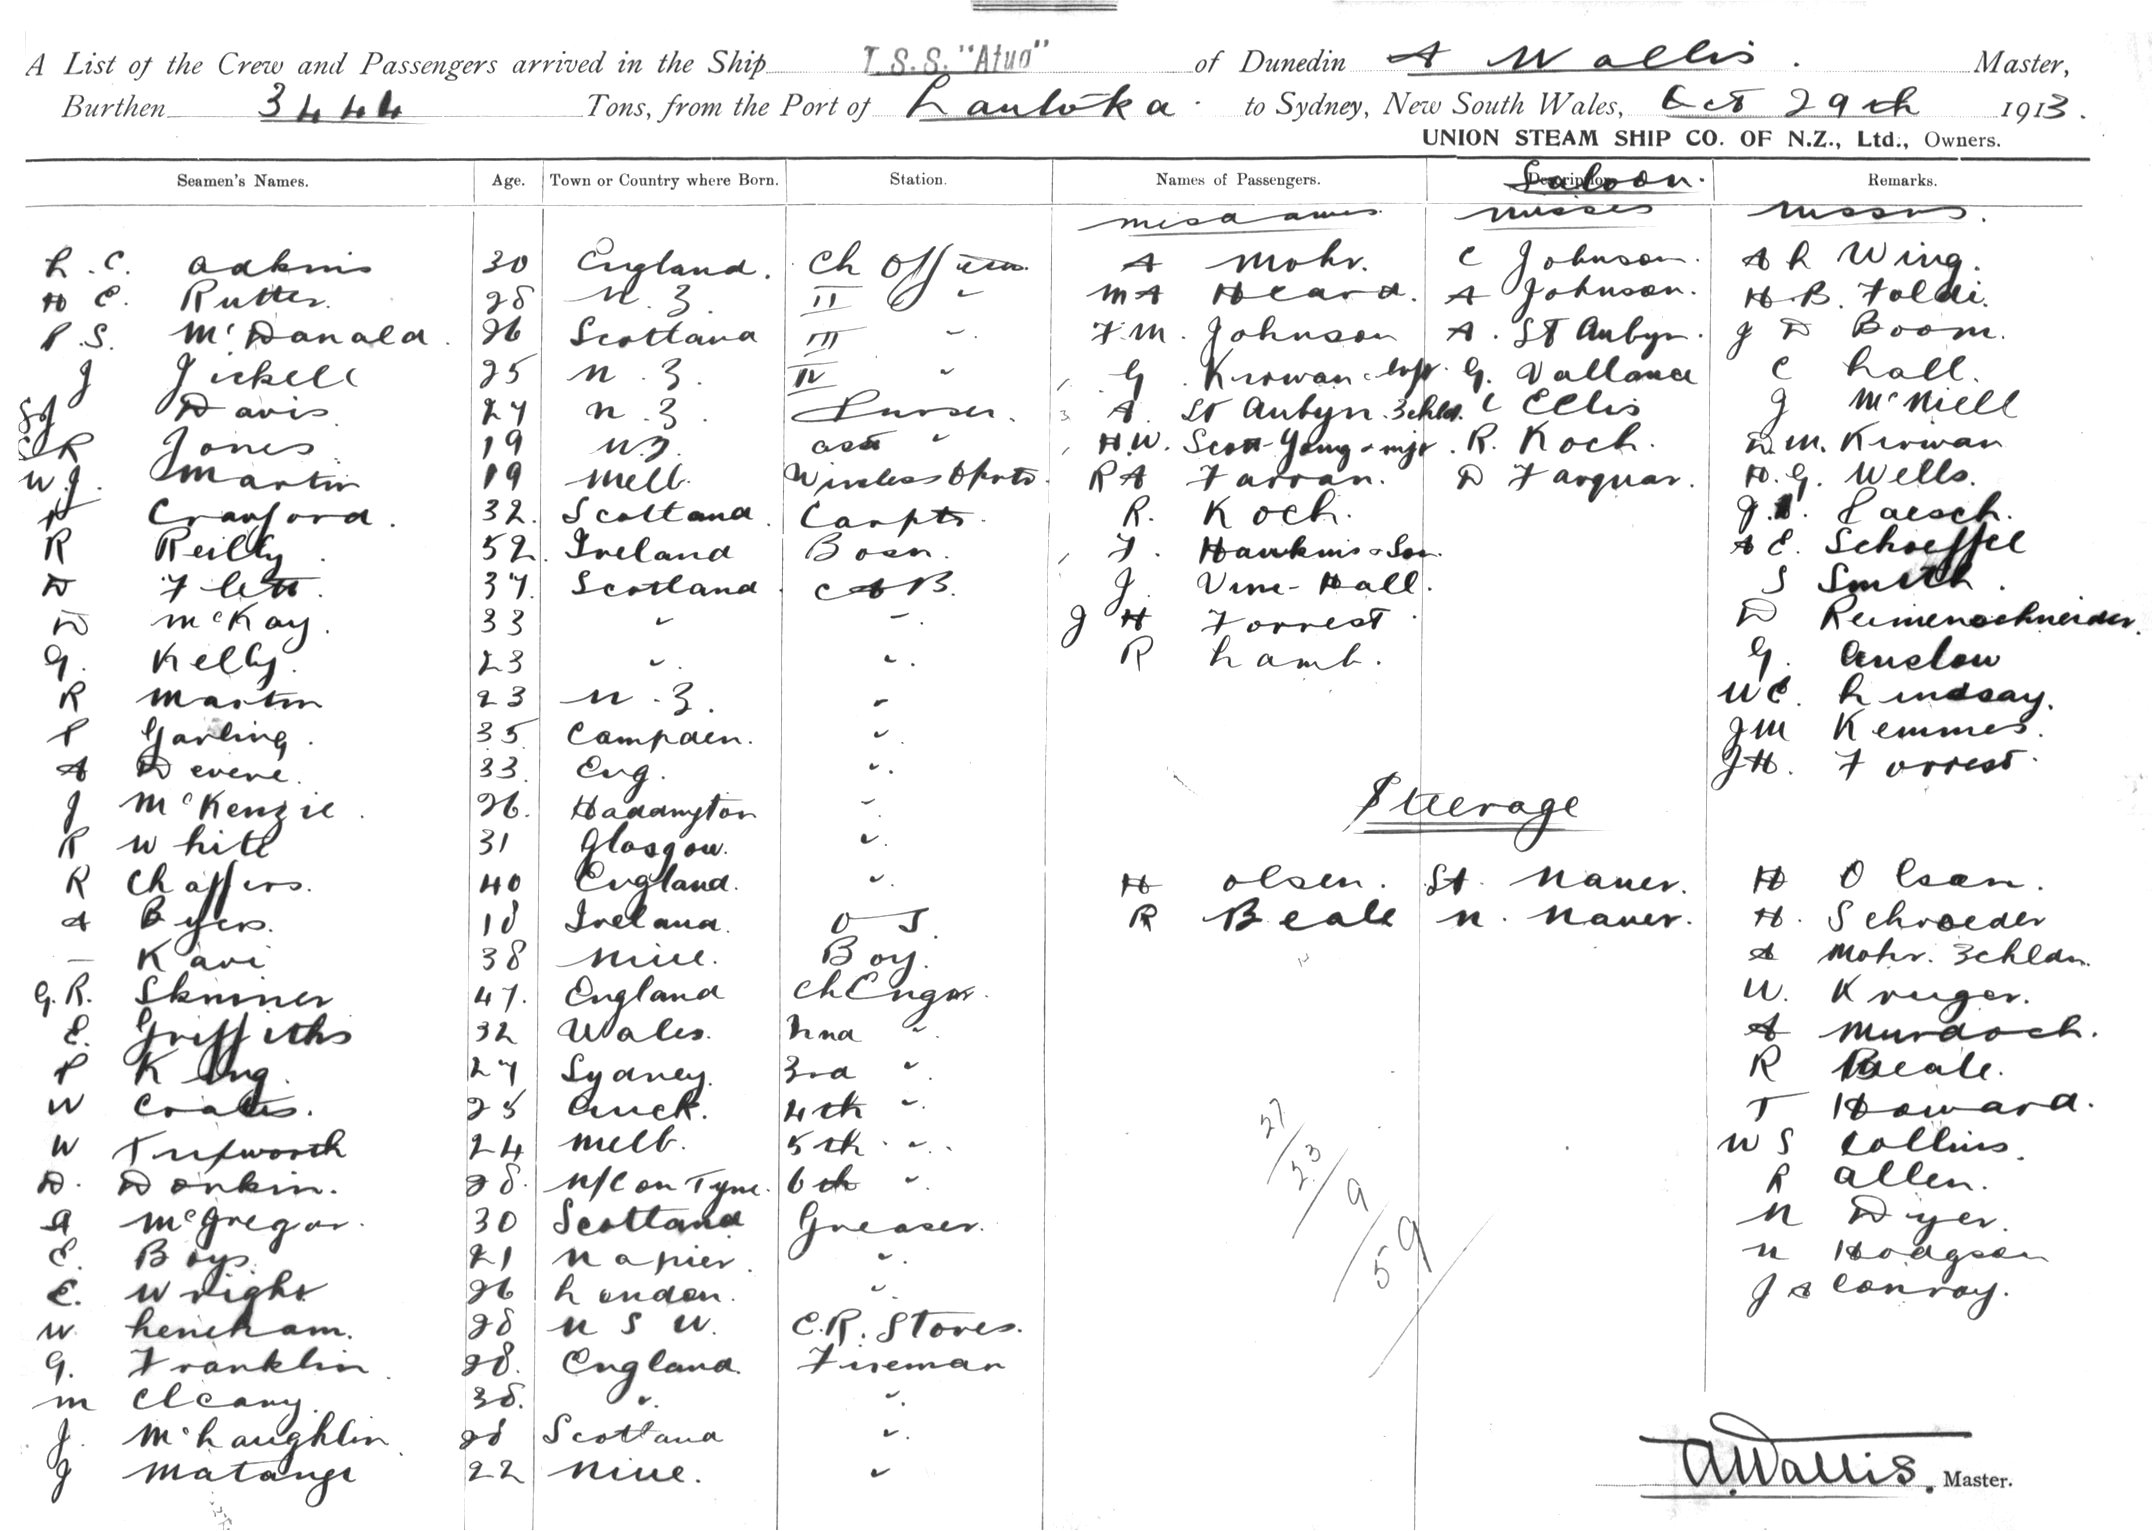 A List of the Crew and Passengers arrived in the Ship T.S.S. "Atua" of Dunedin A Wallis. Master,
Burthen 3444 Tons, from the Port of Lautoka to Sydney, New South Wales, Oct 29th 1913.
UNION STEAM SHIP CO. OF N.Z., Ltd., Owners.
Seamen's Names. Age. Town or Country where Born. Station. Names of Passengers. Saloon. Remarks.
Mesdames Misses Messrs.
L. C. Adkins 30 England. Ch Officer A Mohr. C Johnson. A L Wing.
H E. Rutter. 28 N. Z. II " M A Heard. A Johnson. H. B. Foldi.
P. S. McDonald. 26 Scotland III " F. M. Johnson A. St Aubyn. J D Boom.
J Jickell 25 N. Z. IV " G. Kirwan G. Vallance C Hall.
Davis. 27 N. Z. Purser. A. St Aubyn. 3 chld. Ellis J McNiell
R Jones 19 N.Z. Asst " H. W. Scott-Young R. Koch. D. M. Kirwan
W. J. Martin 19 Melb. Wireless R A Farran. D Farquar. H. G. Wells.
Crauford. 32. Scotland. Carptr. R. Koch. J. Paesch.
R Reilly 52. Ireland Bosn. F. Hawkins & Son. A E. Schoeffel
D Flett. 37. Scotland A B. J. Vine-Hall. S Smith.
D McKay. 33 " " J H Forrest D Reimenschneider.
G. Kelly. 23 " " R Lamb. G. Anslow
R Martin 23 N. Z. " W E. Lindsay.
P Garling. 35 Campden. " J M Kemmes.
A Devene. 33. Eng. " J H. Forrest.
J McKenzie. 26. Haddington "
Steerage
R White 31 Glasgow. "
R Chaffers. 40 England. " H Olsen. St. Nauer. H Olsen.
A Byers. 18 Ireland. O S. R Beale N. Nauer. H. Schroeder
— Kavi 38 Niue. Boy. A Mohr. 3 chldn.
G. R. Skinner 47. England Ch Engr. W. Kruger.
E. Griffiths 32 Wales. 2nd " A Murdoch.
P King. 27 Sydney. 3rd " R Beale.
W Coates. 25 Auck. 4th " T Howard.
W 24 Melb. 5th " W S Collins.
D. Donkin. 28. N/C on Tyne. 6th " R Allen.
A McGregor. 30 Scotland Greaser. N Dyer.
E. Boys. 21 Napier. " N Hodgson
E. Wright 26 London. " J A Conroy.
W. Leneham. 28 N S W. E.R. Stores.
G. Franklin 28. England. Fireman
M 38. " "
J. McLaughlin. 28 Scotland "
J Matangi 22 Niue. "
27/23/9/59
A. Wallis. Master.